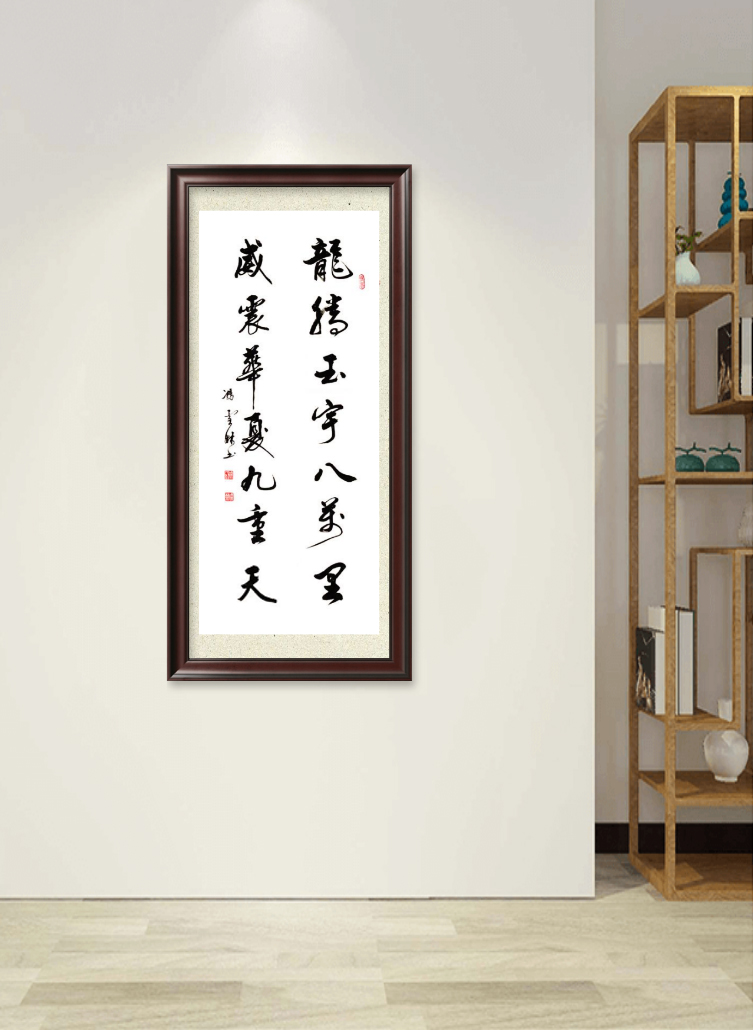 龍騰玉宇八萬里
威震華夏九重天